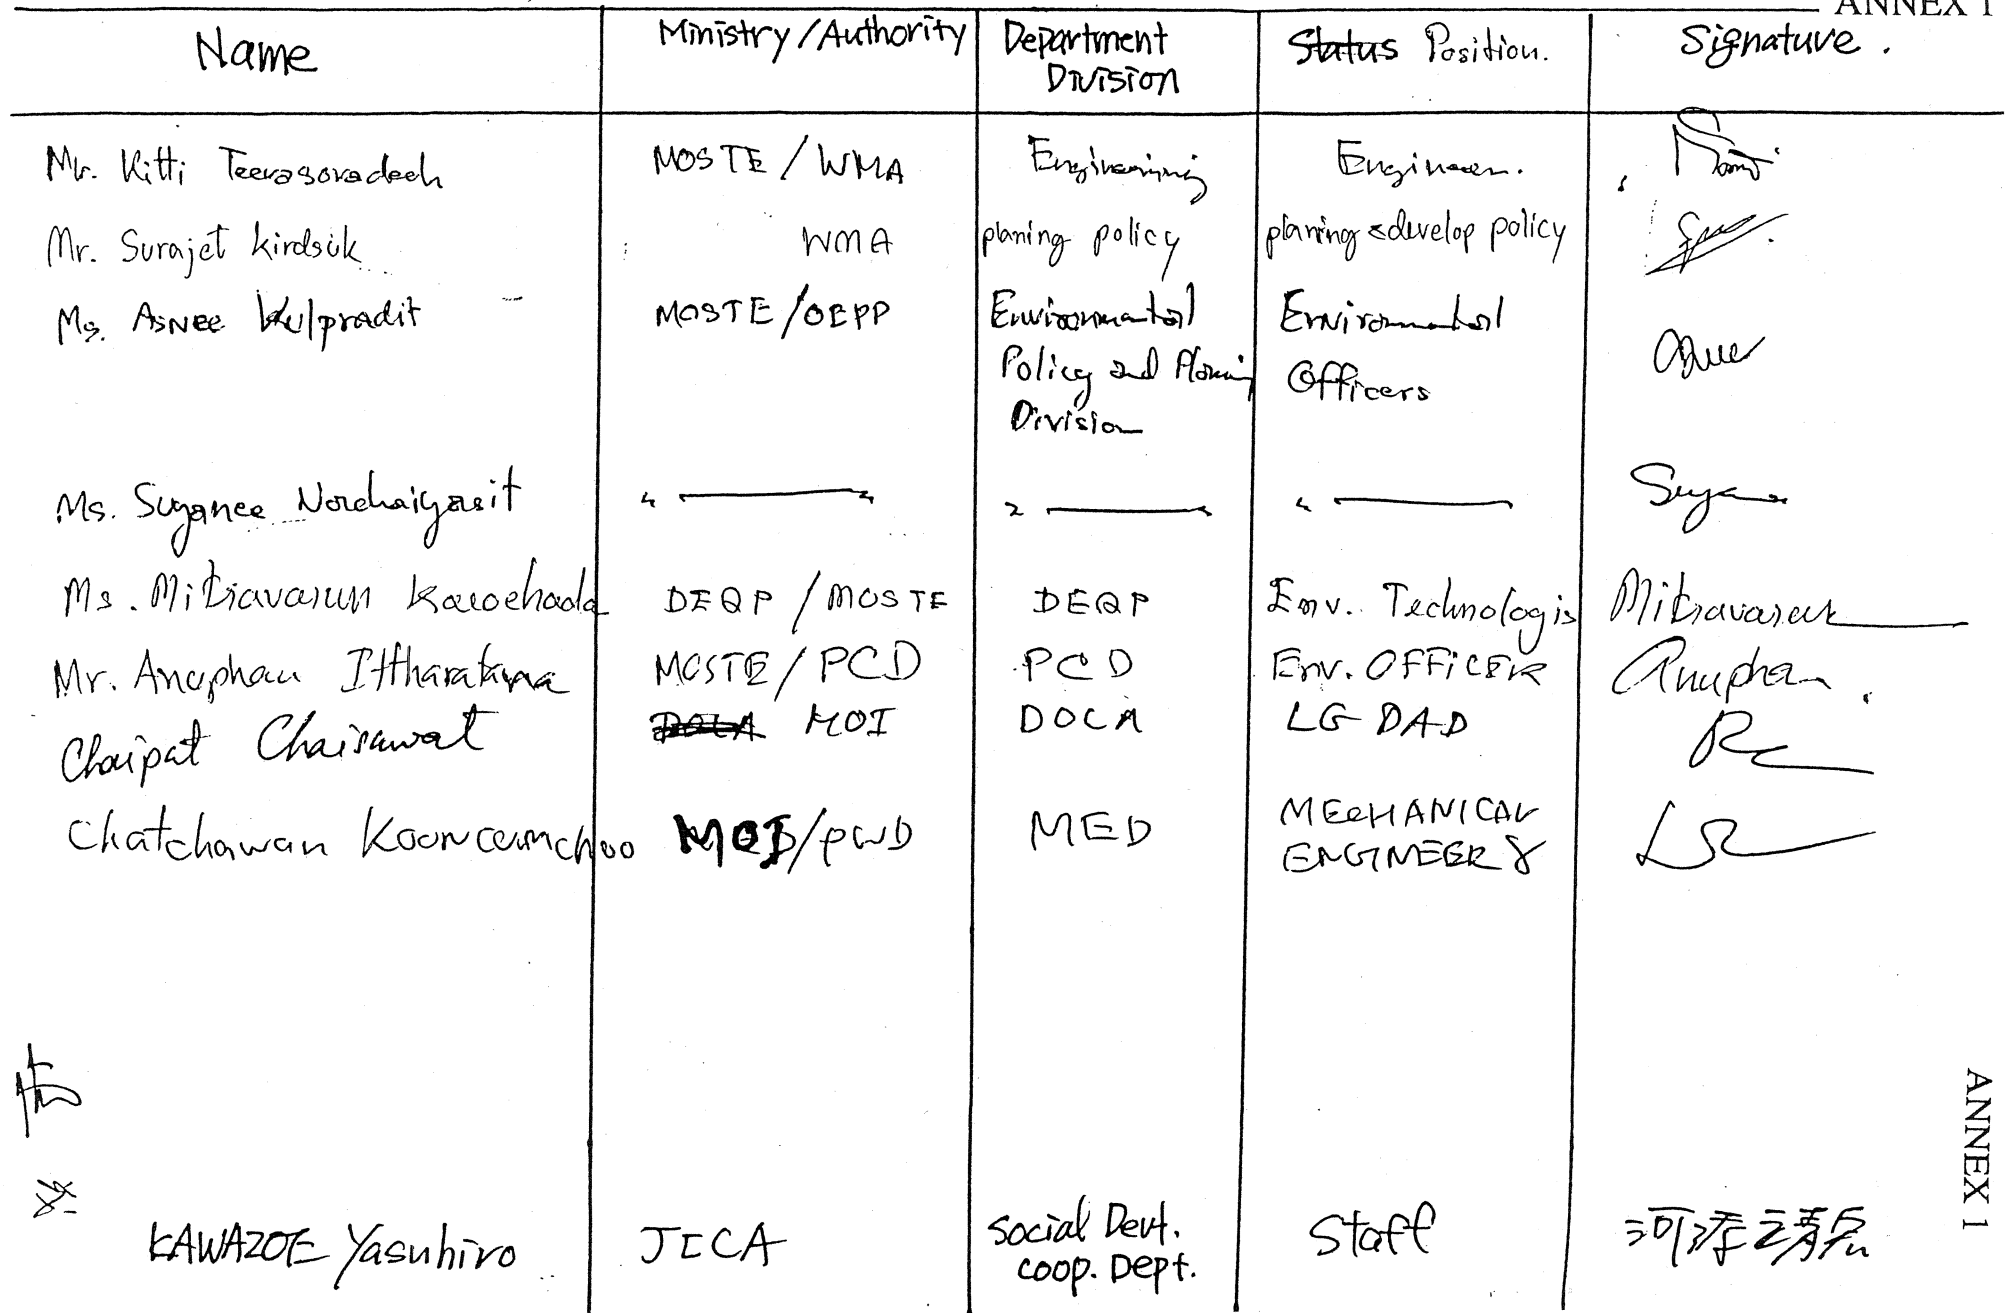 ANNEX 1
Name Ministry/Authority Department Division Status Position. Signature.
Mr. Kitti Teerasoradech MOSTE/WMA Engineering Engineer.
Mr. Surajet Kirdsuk WMA planing policy planing & develop policy
Ms. Asnee Kulpradit MOSTE/OEPP Environmental Environmental
Policy and Planning Officers
Division
Ms. Suganee Norchaiyasit " "  "
Ms. Mitravarun DEQP/MOSTE DEQP Env. Technologis Mitravarun
Mr. Anuphan Ittharatana MOSTE/PCD PCD Env. OFFICER Anuphan
Chaipat Chaisawat DOLA MOI DOCA LG DAD
Chatchawan MOI/PWD MED MECHANICAL
ENGINEER 8
KAWAZOE Yasuhiro JICA Social Devt. Staff
coop. Dept.
ANNEX 1